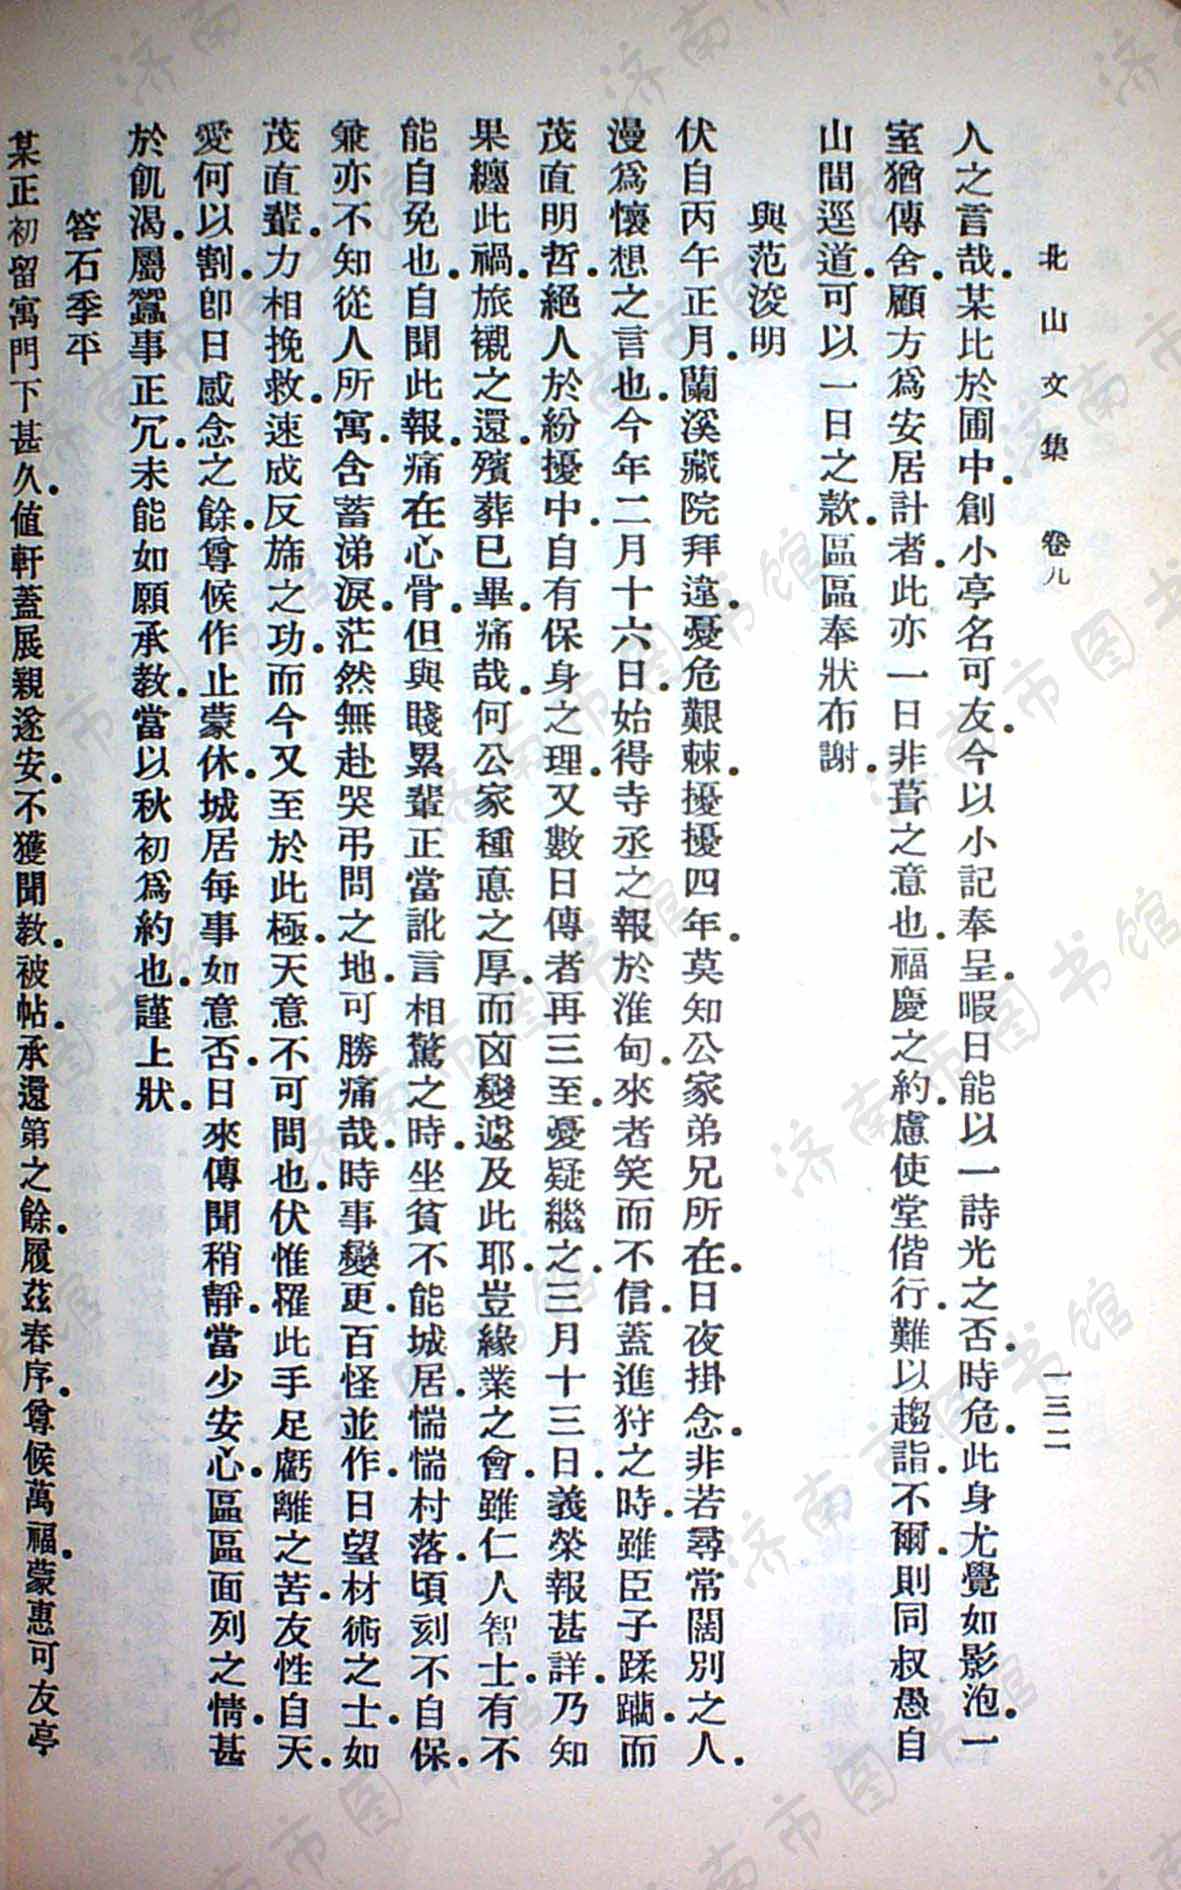 北山文集 卷九 一三二
人之言哉.某比於圃中.創小亭名可友.今以小記奉呈.暇日能以一詩光之否.時危.此身尤覺如影泡.一
室猶傳舍.顧方爲安居計者.此亦一日非葺之意也.福慶之約.慮使堂偕行.難以趨詣.不爾.則同叔愚自
山間逕道.可以一日之款.區區奉狀布謝.
與范浚明
伏自丙午正月.蘭溪藏院拜違.憂危艱棘.擾擾四年.莫知公家弟兄所在.日夜掛念.非若尋常闊別之人.
漫爲懷想之言也.今年二月十六日.始得寺丞之報於淮甸.來者笑而不信.蓋進狩之時.雖臣子蹂躪.而
茂直明哲.絕人於紛擾中.自有保身之理.又數日傳者再三至.憂疑繼之.三月十三日.義榮報甚詳.乃知
果纏此禍.旅櫬之還.殯葬已畢.痛哉.何公家種悳之厚.而凶變遽及此耶.豈緣業之會.雖仁人智士.有不
能自免也.自聞此報.痛在心骨.但與賤累輩正當訛言相驚之時.坐貧不能城居.惴惴村落.頃刻不自保.
兼亦不知從人所寓.含蓄涕淚.茫然無赴哭弔問之地.可勝痛哉.時事變更.百怪並作.日望材術之士.如
茂直輩.力相挽救.速成反斾之功.而今又至於此極.天意不可問也.伏惟罹此手足虧離之苦.友性自天.
愛何以割.卽日感念之餘.尊候作止蒙休.城居每事如意否.日來傳聞稍靜.當少安心.區區面列之情.甚
於飢渴.屬蠶事正冗.未能如願承教.當以秋初爲約也.謹上狀.
答石季平
某正初留寓門下甚久.値軒蓋展親遂安.不獲聞教.被帖.承還第之餘.履茲春序.尊候萬福.蒙惠可友亭